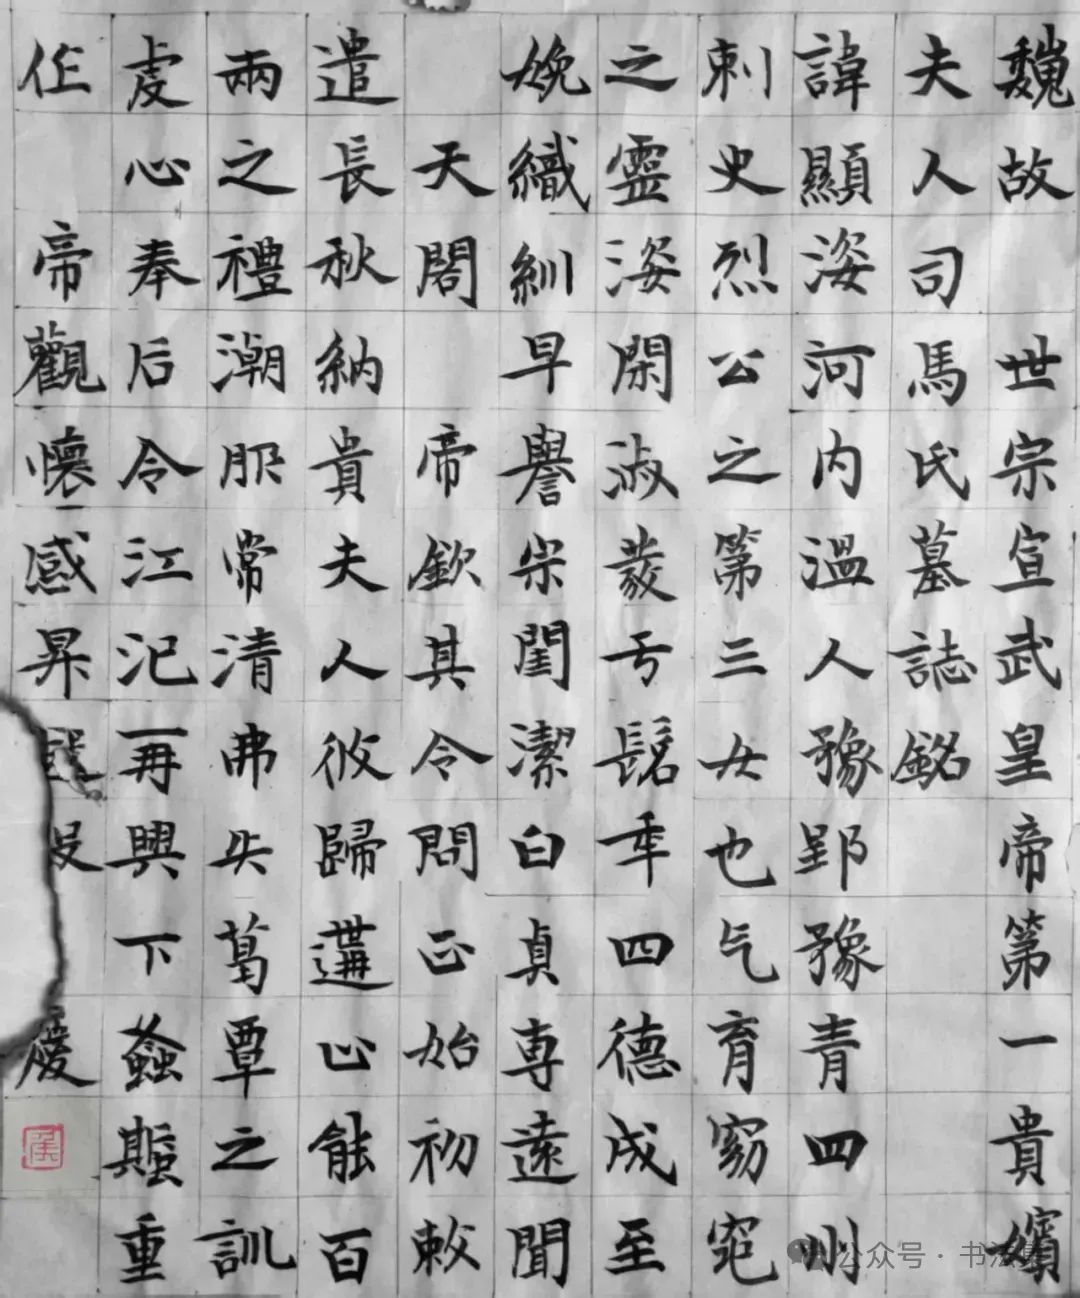 魏故世宗宣武皇帝第一貴嬪
夫人司馬氏墓誌銘
諱顯姿河内温人豫郢豫青四州
刺史烈公之第三女也气育窈窕
之靈姿閑淑發于髫年四德成至
婉織紃早譽宗閨潔白貞專遠聞
天閣帝欽其令問正始初敕
遣長秋納貴夫人攸歸遘止能百
兩之禮潮服常清弗失葛覃之訓
虔心奉后令江汜再興下螽蜤重
作帝觀懷感昇
公众号 · 书法